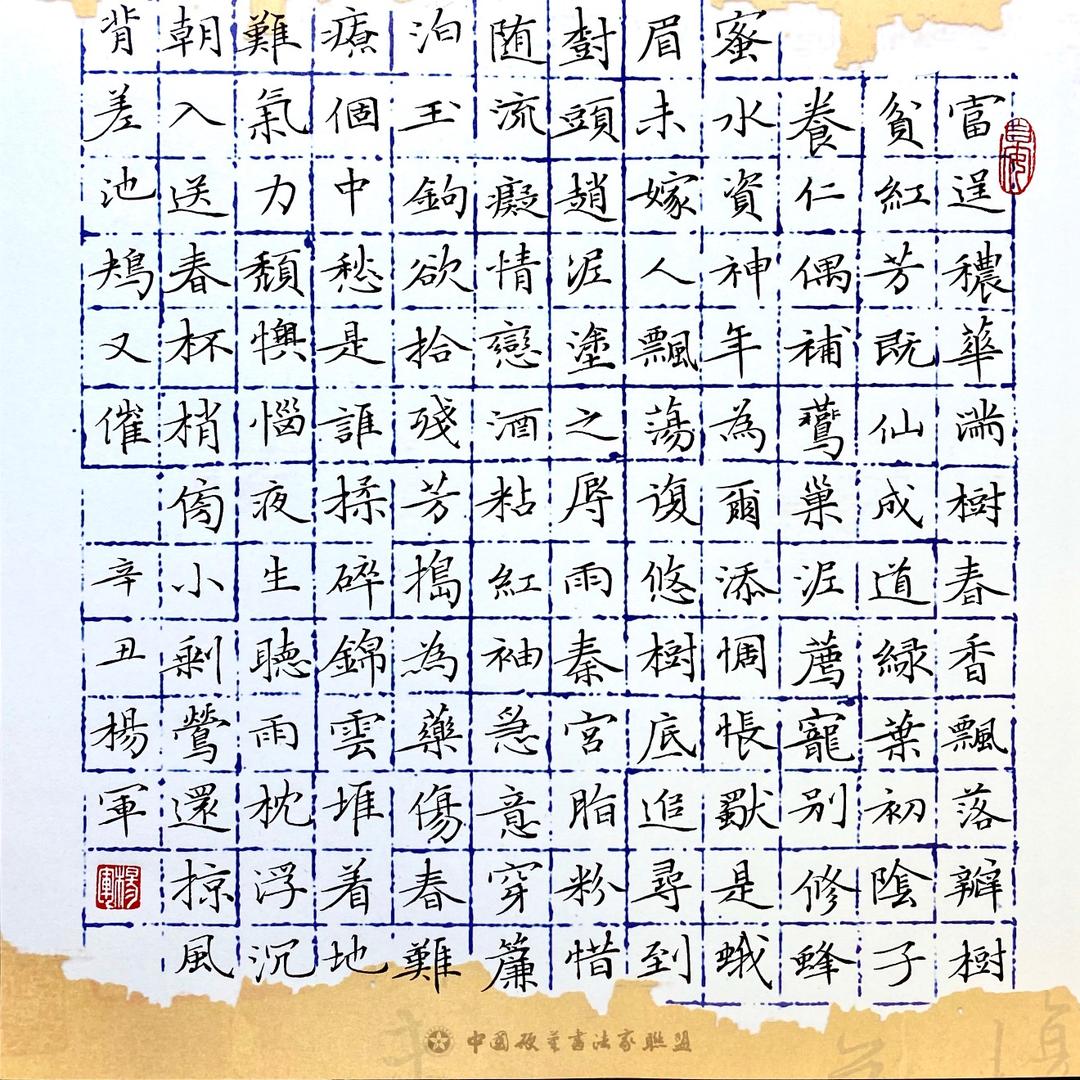 富逞穠華滿樹春香飄落瓣樹
貧紅芳既仙成道綠葉初陰子
養仁偶補鷰巢泥薦寵別修蜂
蜜水資神年為爾添惆悵是蛾
眉未嫁人飄蕩復悠樹底追尋到
樹頭趙泥塗之辱雨秦宮脂粉惜
随流癡情戀酒粘紅袖急意穿簾
泊玉鉤欲拾殘芳搗為藥傷春難
療個中愁是誰揉碎錦雲堆着地
難氣力頹懊惱夜生聽雨枕浮沉
朝入送春杯梢傍小剩鶯還掠風
背差池鴂又催
辛丑楊軍
楊軍
中国硬笔书法家联盟